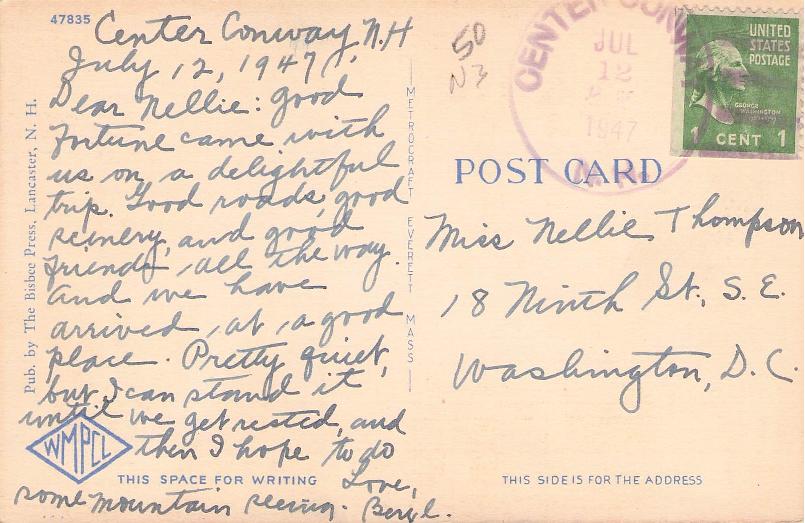 47835
Center Conway, N.H
July 12, 1947
Dear Nellie: Good
Fortune came with
us on a delightful
trip. Good roads, good
scenery, and good
friends all the way.
And we have
arrived at a good
place. Pretty quiet,
but I can stand it
until we get rested, and
then I hope to do
some mountain seeing.
Love,
Beryl.
WMPCL
THIS SPACE FOR WRITING
Pub. by The Bisbee Press, Lancaster, N. H.
METROCRAFT EVERETT MASS
50
N3
CENTER CONWAY
JUL
12
1947
N.H.
UNITED
STATES
POSTAGE
GEORGE
WASHINGTON
1 CENT 1
POST CARD
Miss Nellie Thompson
18 Ninth St., S.E.
Washington, D.C.
THIS SIDE IS FOR THE ADDRESS